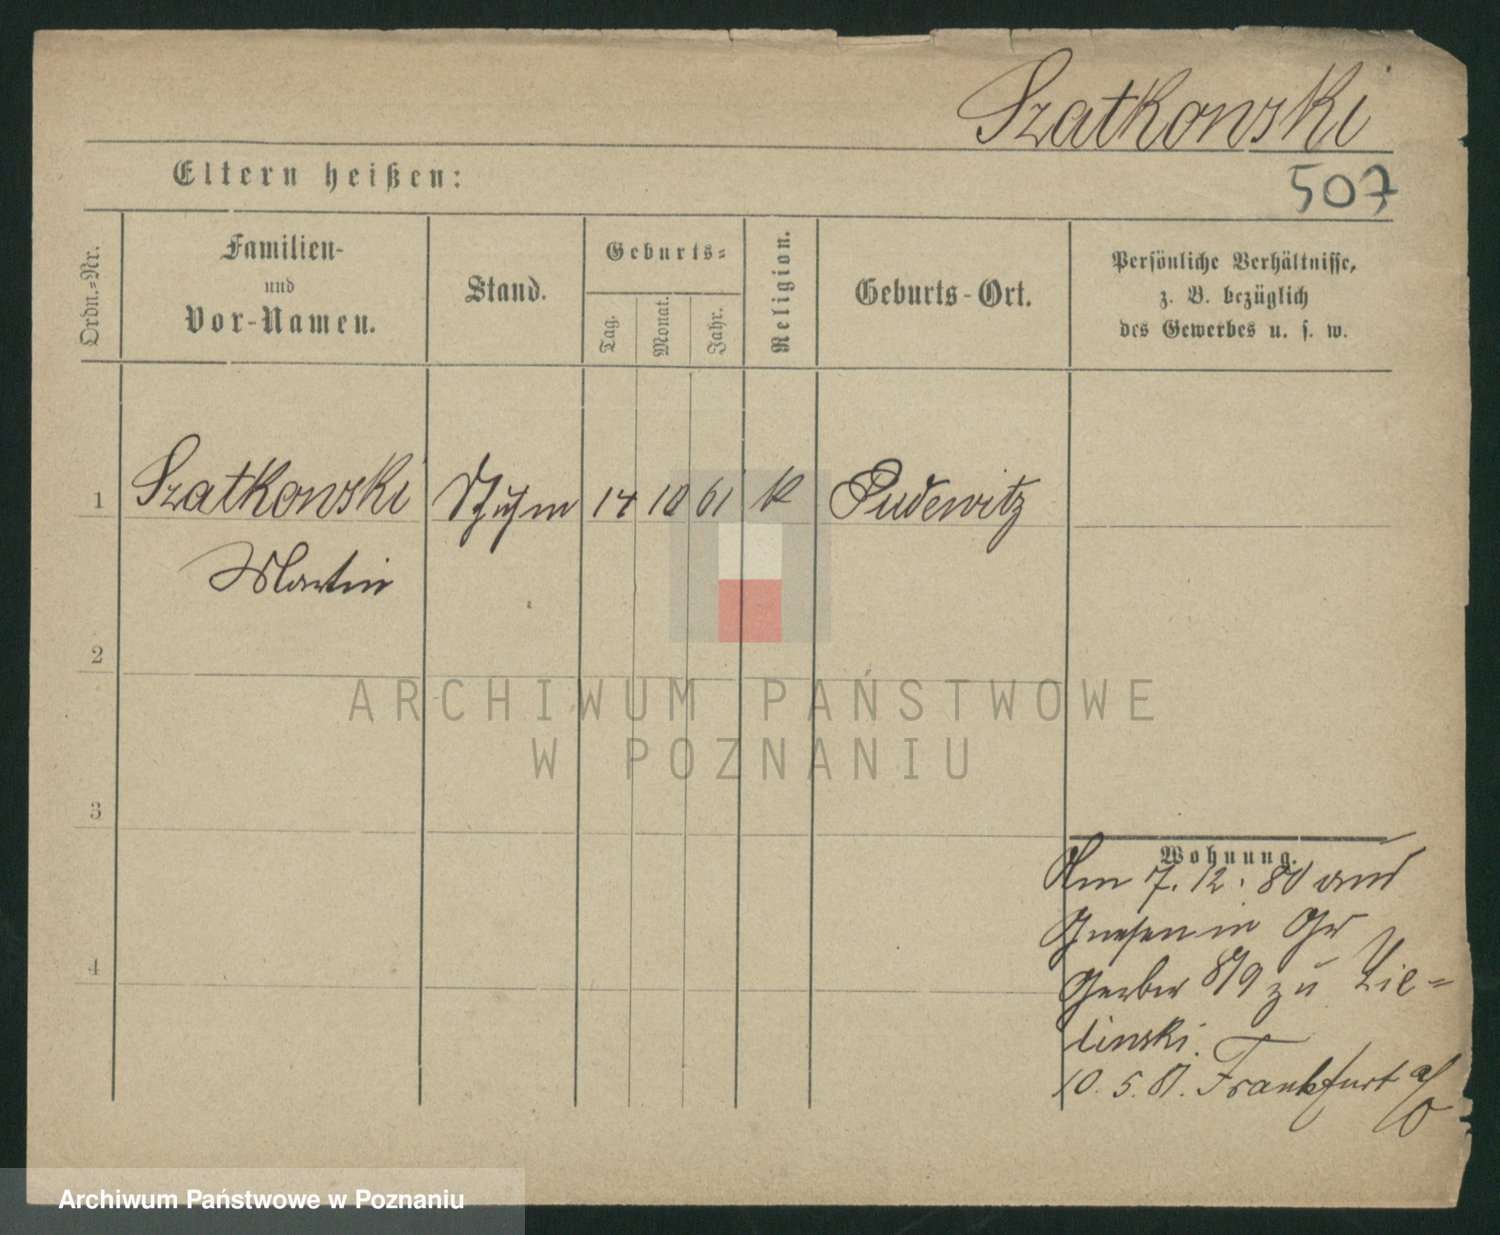 Szatkowski
Eltern heißen:
507
Ordn.-Nr.
Familien-
und
Vor-Namen.
Stand.
Geburts-
Tag.
Monat.
Jahr.
Religion.
Geburts-Ort.
Persönliche Verhältnisse,
z. B. bezüglich
des Gewerbes u. s. w.
1
Szatkowski
Schuhm
14
10
61
K
Pudewitz
Martin
2
3
4
Wohnung.
Am 7. 12. 80 aus
Gnesen in Gr
Gerber 8/9 zu Zie-
linski.
10. 5. 81. Frankfurt a/
O
ARCHIWUM PAŃSTWOWE
W POZNANIU
Archiwum Państwowe w Poznaniu